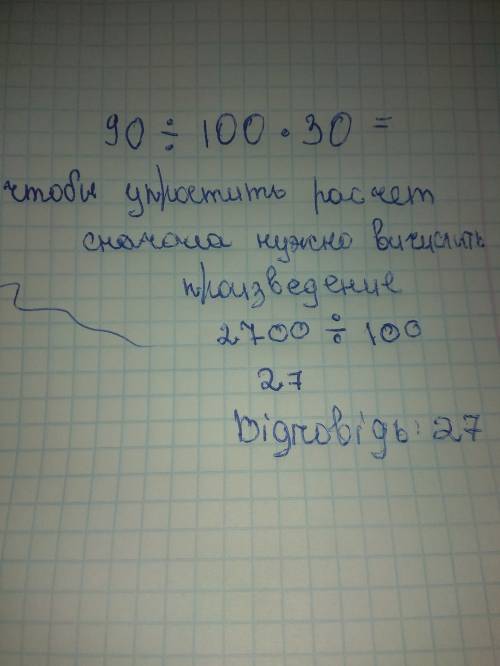 90 ÷ 100 • 30 =
чтобы упростить расчет
сначала нужно вичислить
произведение
2700 ÷ 100
27
Відповідь: 27